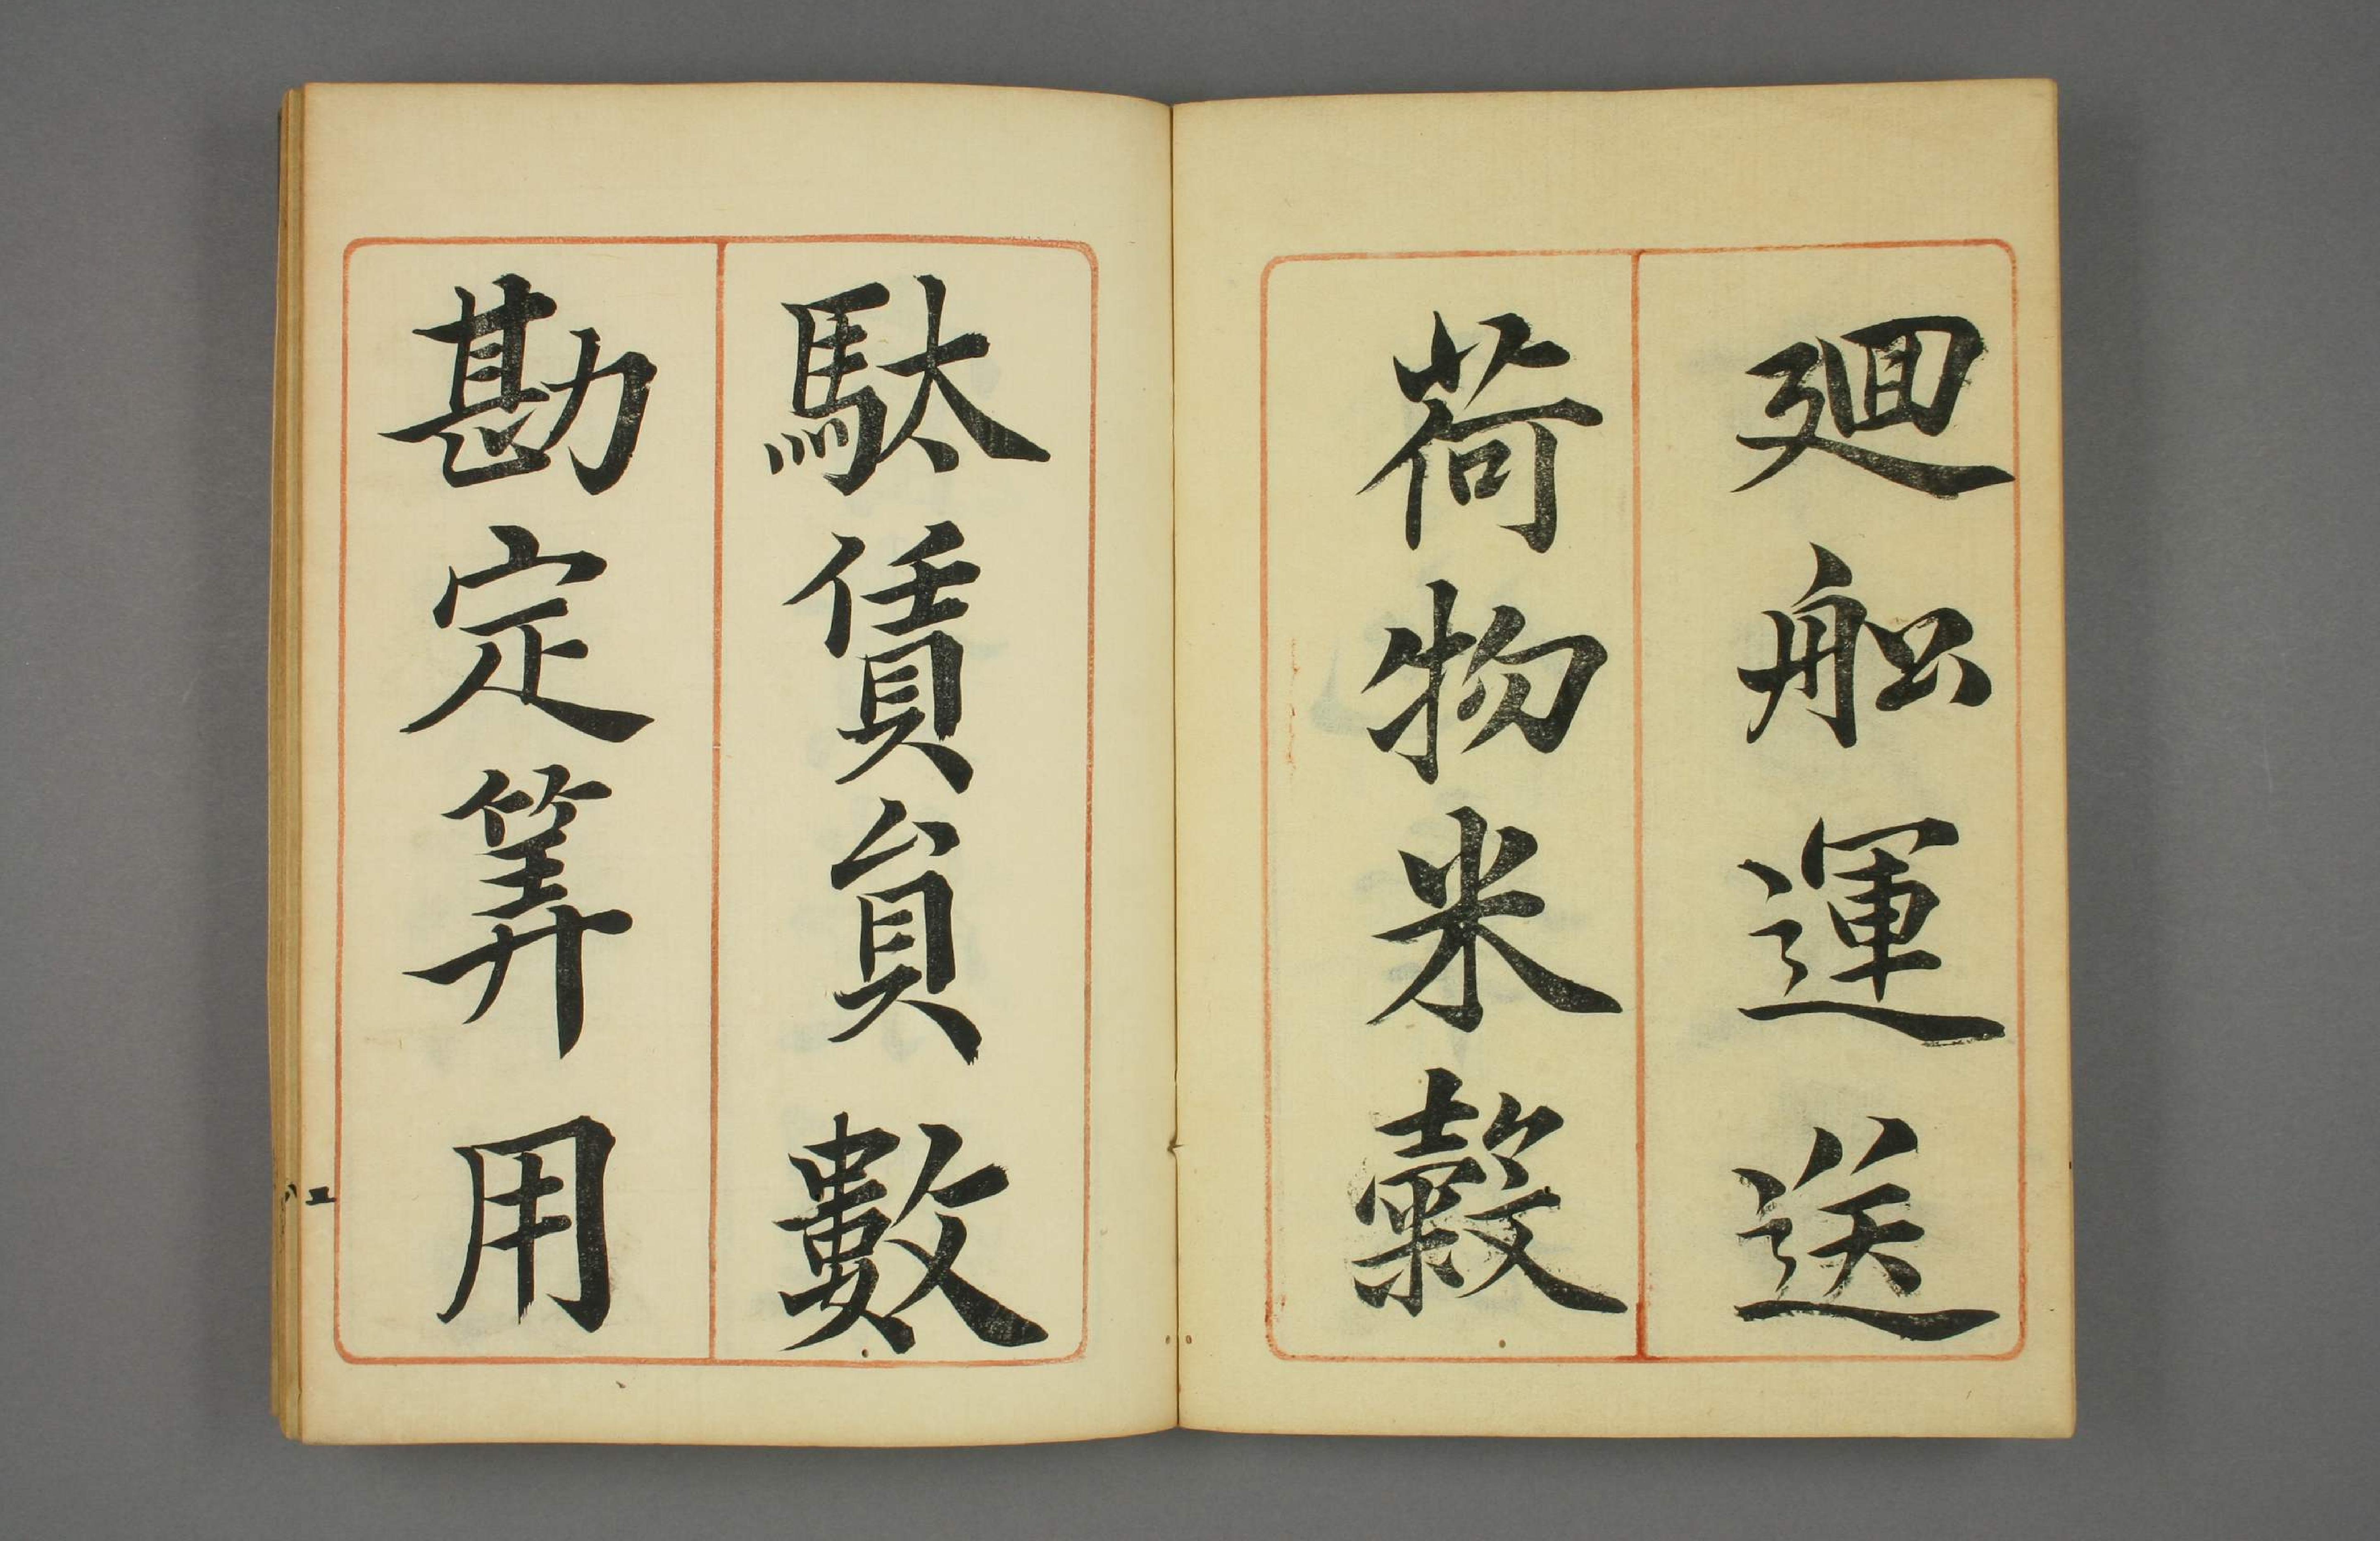 廻舩運送
荷物米穀
駄賃員數
勘定筭用